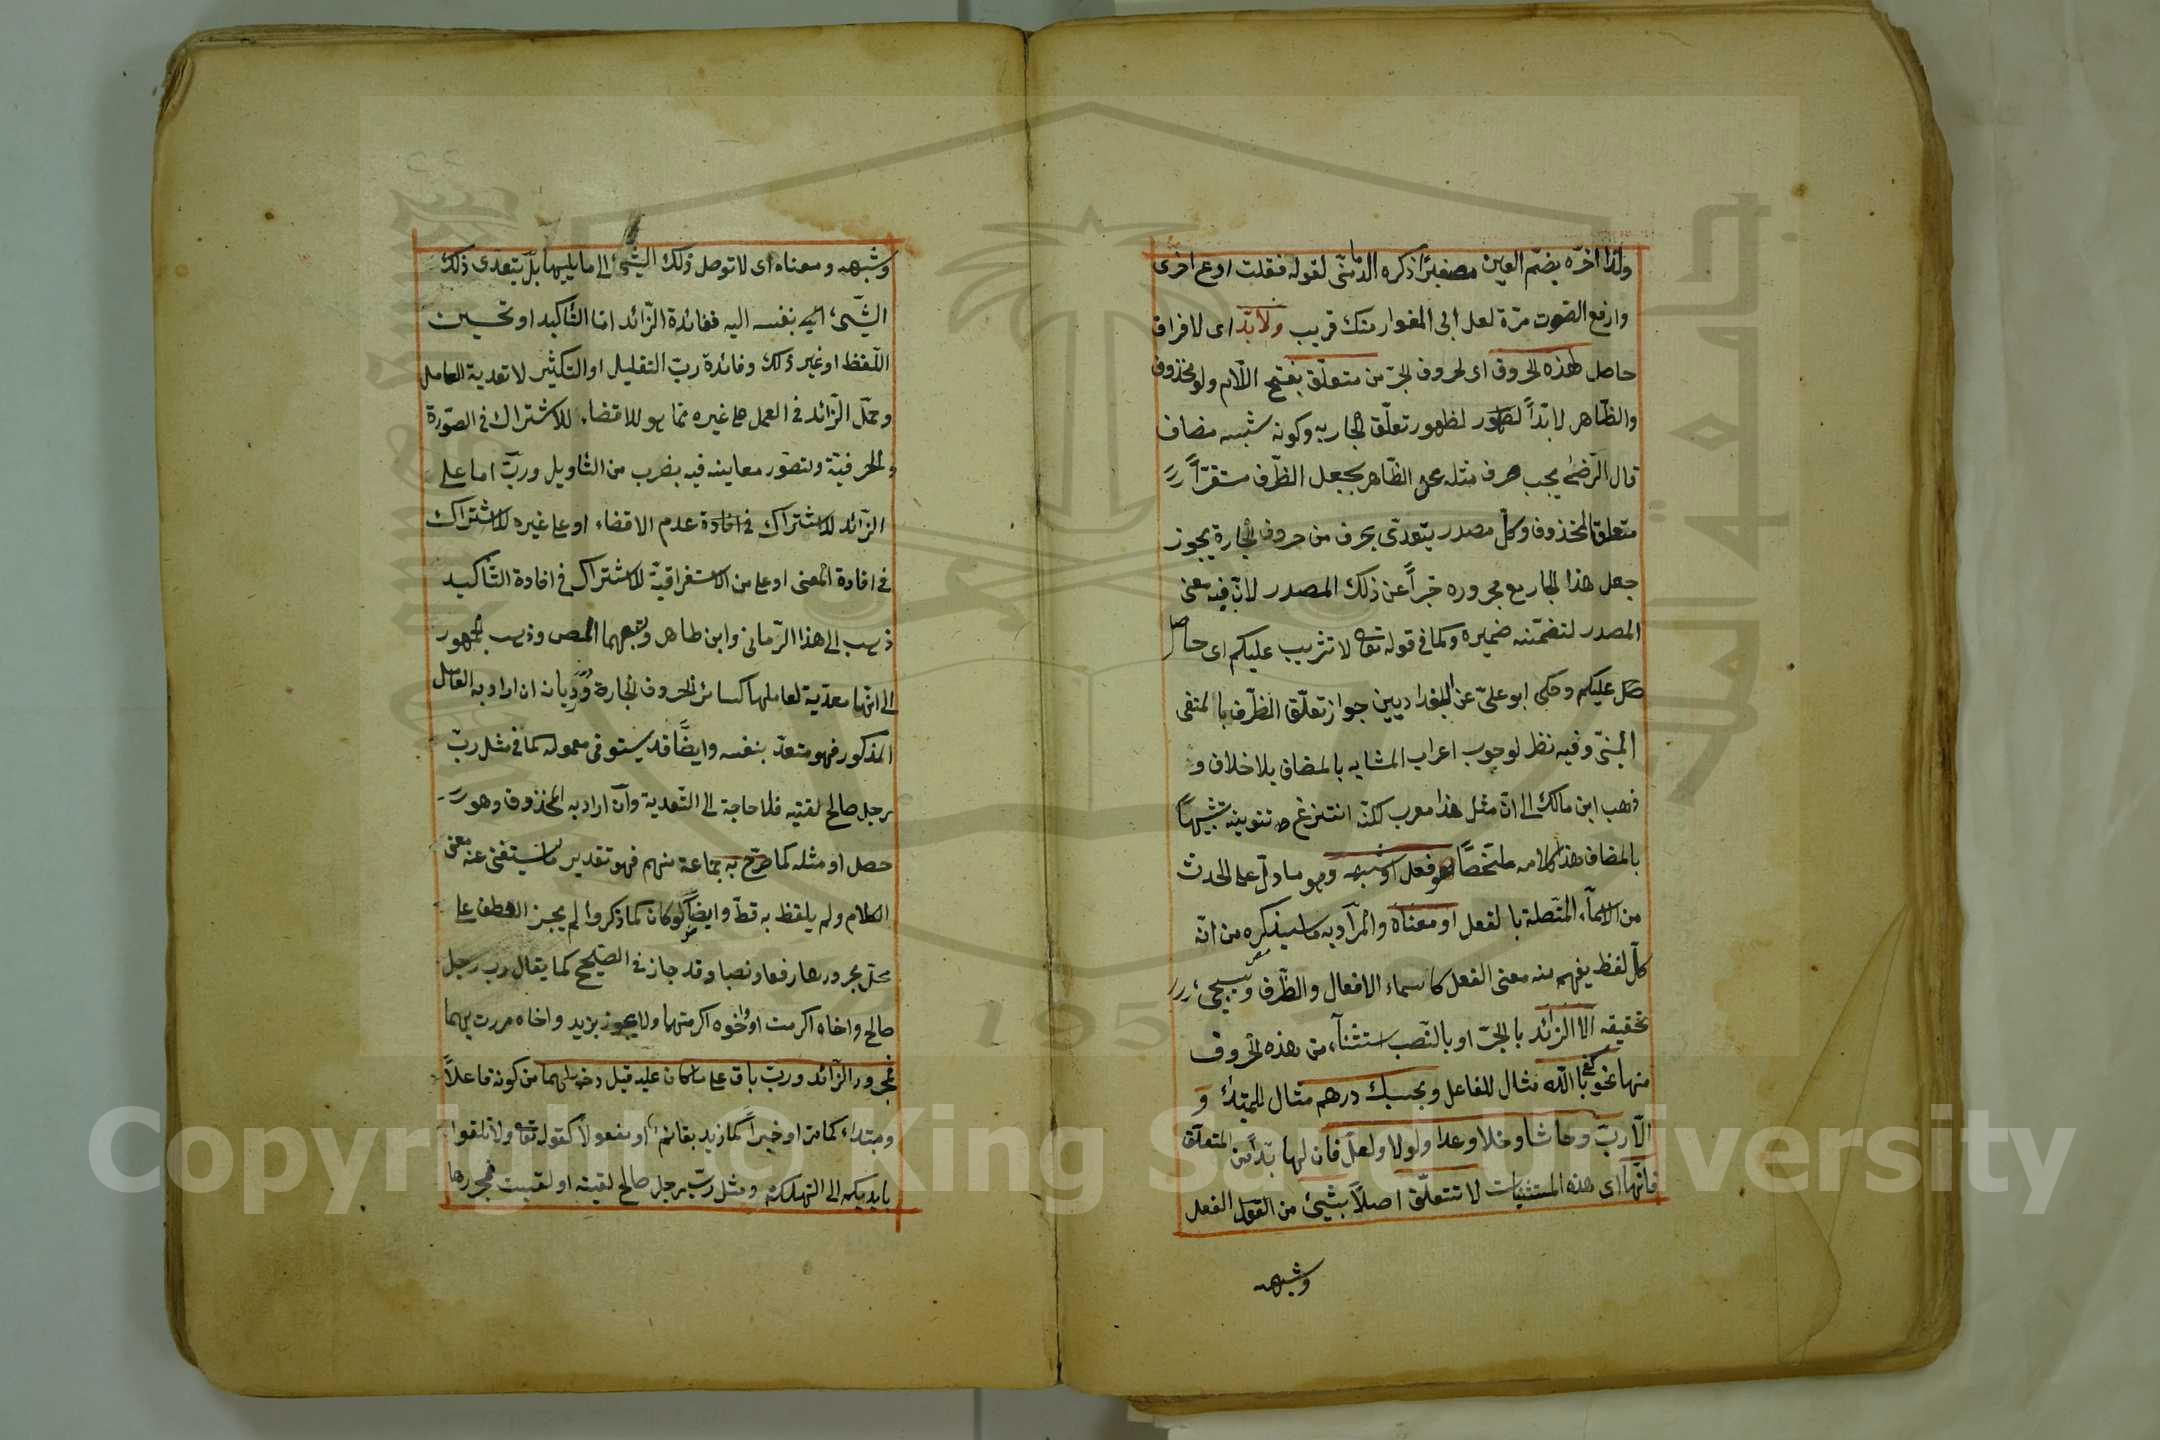 ولذا اخره بضم العين مصغرا ذكره الدماميني لقوله فقلت ادع اخرى
وارفع الصوت مرة لعل ابى المغوار منك قريب ولا بد اى لا فراق
حاصل لهذه الحروف اى لحروف الجر من متعلق بفتح اللام ولو محذوف
والظاهر لا بدا لظهور تعلق الجار به وكونه شبه مضاف
قال الرضى يجب صرف مثله عن الظاهر بجعل الظرف مستقرا
متعلق المحذوف وكل مصدر يتعدى بحرف من حروف الجارة يجوز
جعل هذا الجار مع مجروره خبرا عن ذلك المصدر لان فيه معنى
المصدر لتضمنه ضميره وكما فى قوله تعالى لا تثريب عليكم اى حاصل
عليكم وحكى ابو على عن البغداديين جواز تعلق الظرف بالمنفى
المبنى وفيه نظر لوجوب اعراب المشابه بالمضاف بلا خلاف و
ذهب ابن مالك الى ان مثل هذا معرب لكنه انتزع تنوينه تشبيها
بالمضاف هذا كلامه ملخصا فعل او شبهه وهو ما دل على الحدث
من الاسماء المتصلة بالفعل او معناه والمراد به ما سيذكره من انه
كل لفظ يفهم منه معنى الفعل كاسماء الافعال والظرف وسيجئ
تحقيقه الا الزائد بالجر او بالنصب استثناء من هذه الحروف
منها نحو كفى بالله مثال للفاعل وبحسبك درهم مثال للمبتدا و
الا رب وحاشا وخلا وعدا ولولا ولعل فان لها بدا من المتعلق
فانها اى هذه المستثنيات لا تتعلق اصلا بشئ من الفعل
وشبهه
وشبهه ومعناه اى لا توصل ذلك الشئ الى ما يليها بل يتعدى ذلك
الشئ بنفسه اليه ففائدة الزائد اما التاكيد او تحسين
اللفظ او غير ذلك وفائدة رب التقليل او التكثير لا تعدية العامل
وحمل الزائد فى العمل على غيره مما هو للافضاء للاشتراك فى الصورة
والحرفية ولتصور معاينه فيه بضرب من التاويل ورب اما على
الزائد للاشتراك فى افادة عدم الافضاء او على غيره للاشتراك
فى افادة المعنى او على من الاستغراقية للاشتراك فى افادة التاكيد
ذهب الى هذا الرمانى وابن طاهر وتبعهما المص وذهب الجمهور
الى انها معدية لعاملها كسائر الحروف الجارة ورد بان ان اراد به العامل
المذكور فهو متعد بنفسه وايضا قد يستوفى معموله كما فى مثل رب
رجل صالح لقيته فلا حاجة الى التعدية وان اراد به المحذوف وهو
حصل او مثله كما صرح به جماعة منهم فهو تقدير ما يستغنى عنه معنى
الكلام ولم يلفظ به قط وايضا لو كان كما ذكروا لم يجز العطف على
محل مجرورها رفعا ونصبا وقد جاز فى الصحيح كما يقال رب رجل
صالح واخاه اكرمت او واخوه اكرمتهما ولا يجوز بزيد واخاه مررت بهما
فمجرور الزائد ورب باق على ما كان عليه قبل دخولهما من كونه فاعلا
ومبتداء كما مر او خبرا كما زيد بقائم او مفعولا كقوله تعالى ولا تلقوا
بايديكم الى التهلكة ومثل رب رجل صالح لقيته او لقيت فمجرورها
Copyright © King Saud University